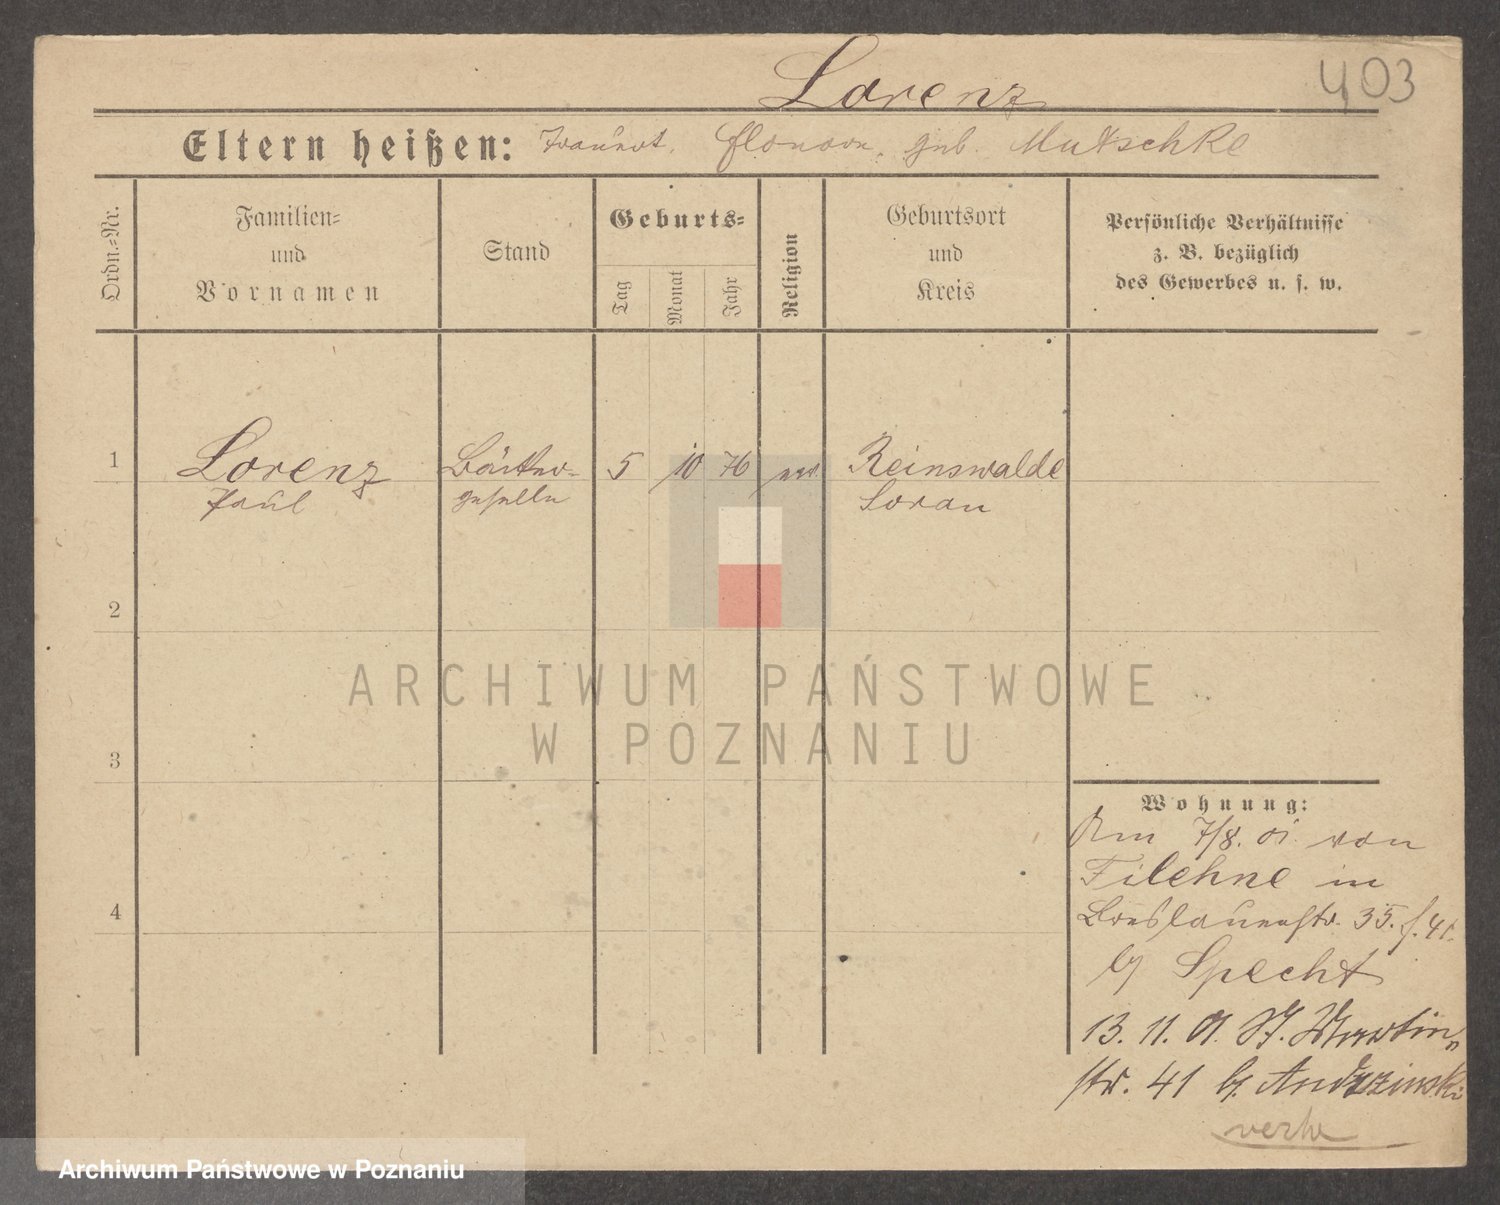 Lorenz
403
Eltern heißen: Traugott, geb. Mutschke
Ordn.=Nr.
Familien=
und
Vornamen
Stand
Geburts=
Tag
Monat
Jahr
Religion
Geburtsort
und
Kreis
Persönliche Verhältnisse
z. B. bezüglich
des Gewerbes u. s. w.
1
Lorenz
Paul
Bäcker-
geselle
5
10
76
Reinswalde
Sorau
2
3
4
ARCHIWUM PAŃSTWOWE
W POZNANIU
Wohnung:
Am 7/8. 01. von
Filehne in
Breslauerstr. 35.
b/ Specht
13. 11. 01. St. Martin
str. 41 b/. Andrzinski
Archiwum Państwowe w Poznaniu